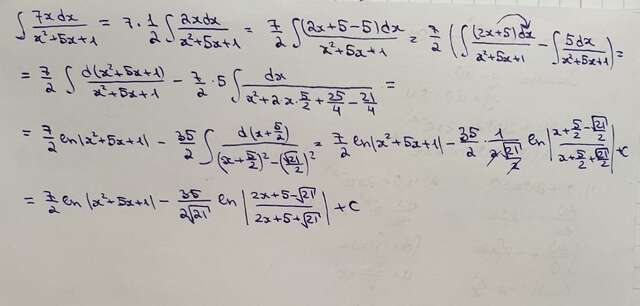 ∫ 7xdx/(x²+5x+1) = 7·1/2 ∫ 2xdx/(x²+5x+1) = 7/2 ∫ (2x+5-5)dx/(x²+5x+1) = 7/2 (∫ (2x+5)dx/(x²+5x+1) - ∫ 5dx/(x²+5x+1)) =
= 7/2 ∫ d(x²+5x+1)/(x²+5x+1) - 7/2·5 ∫ dx/(x²+2·x·5/2+25/4-21/4) =
= 7/2 ln|x²+5x+1| - 35/2 ∫ d(x+5/2)/((x+5/2)²-(√21/2)²) = 7/2 ln|x²+5x+1| - 35/2 · 1/(2·√21/2) ln|(x+5/2-√21/2)/(x+5/2+√21/2)|+C
= 7/2 ln|x²+5x+1| - 35/(2√21) ln|(2x+5-√21)/(2x+5+√21)|+C